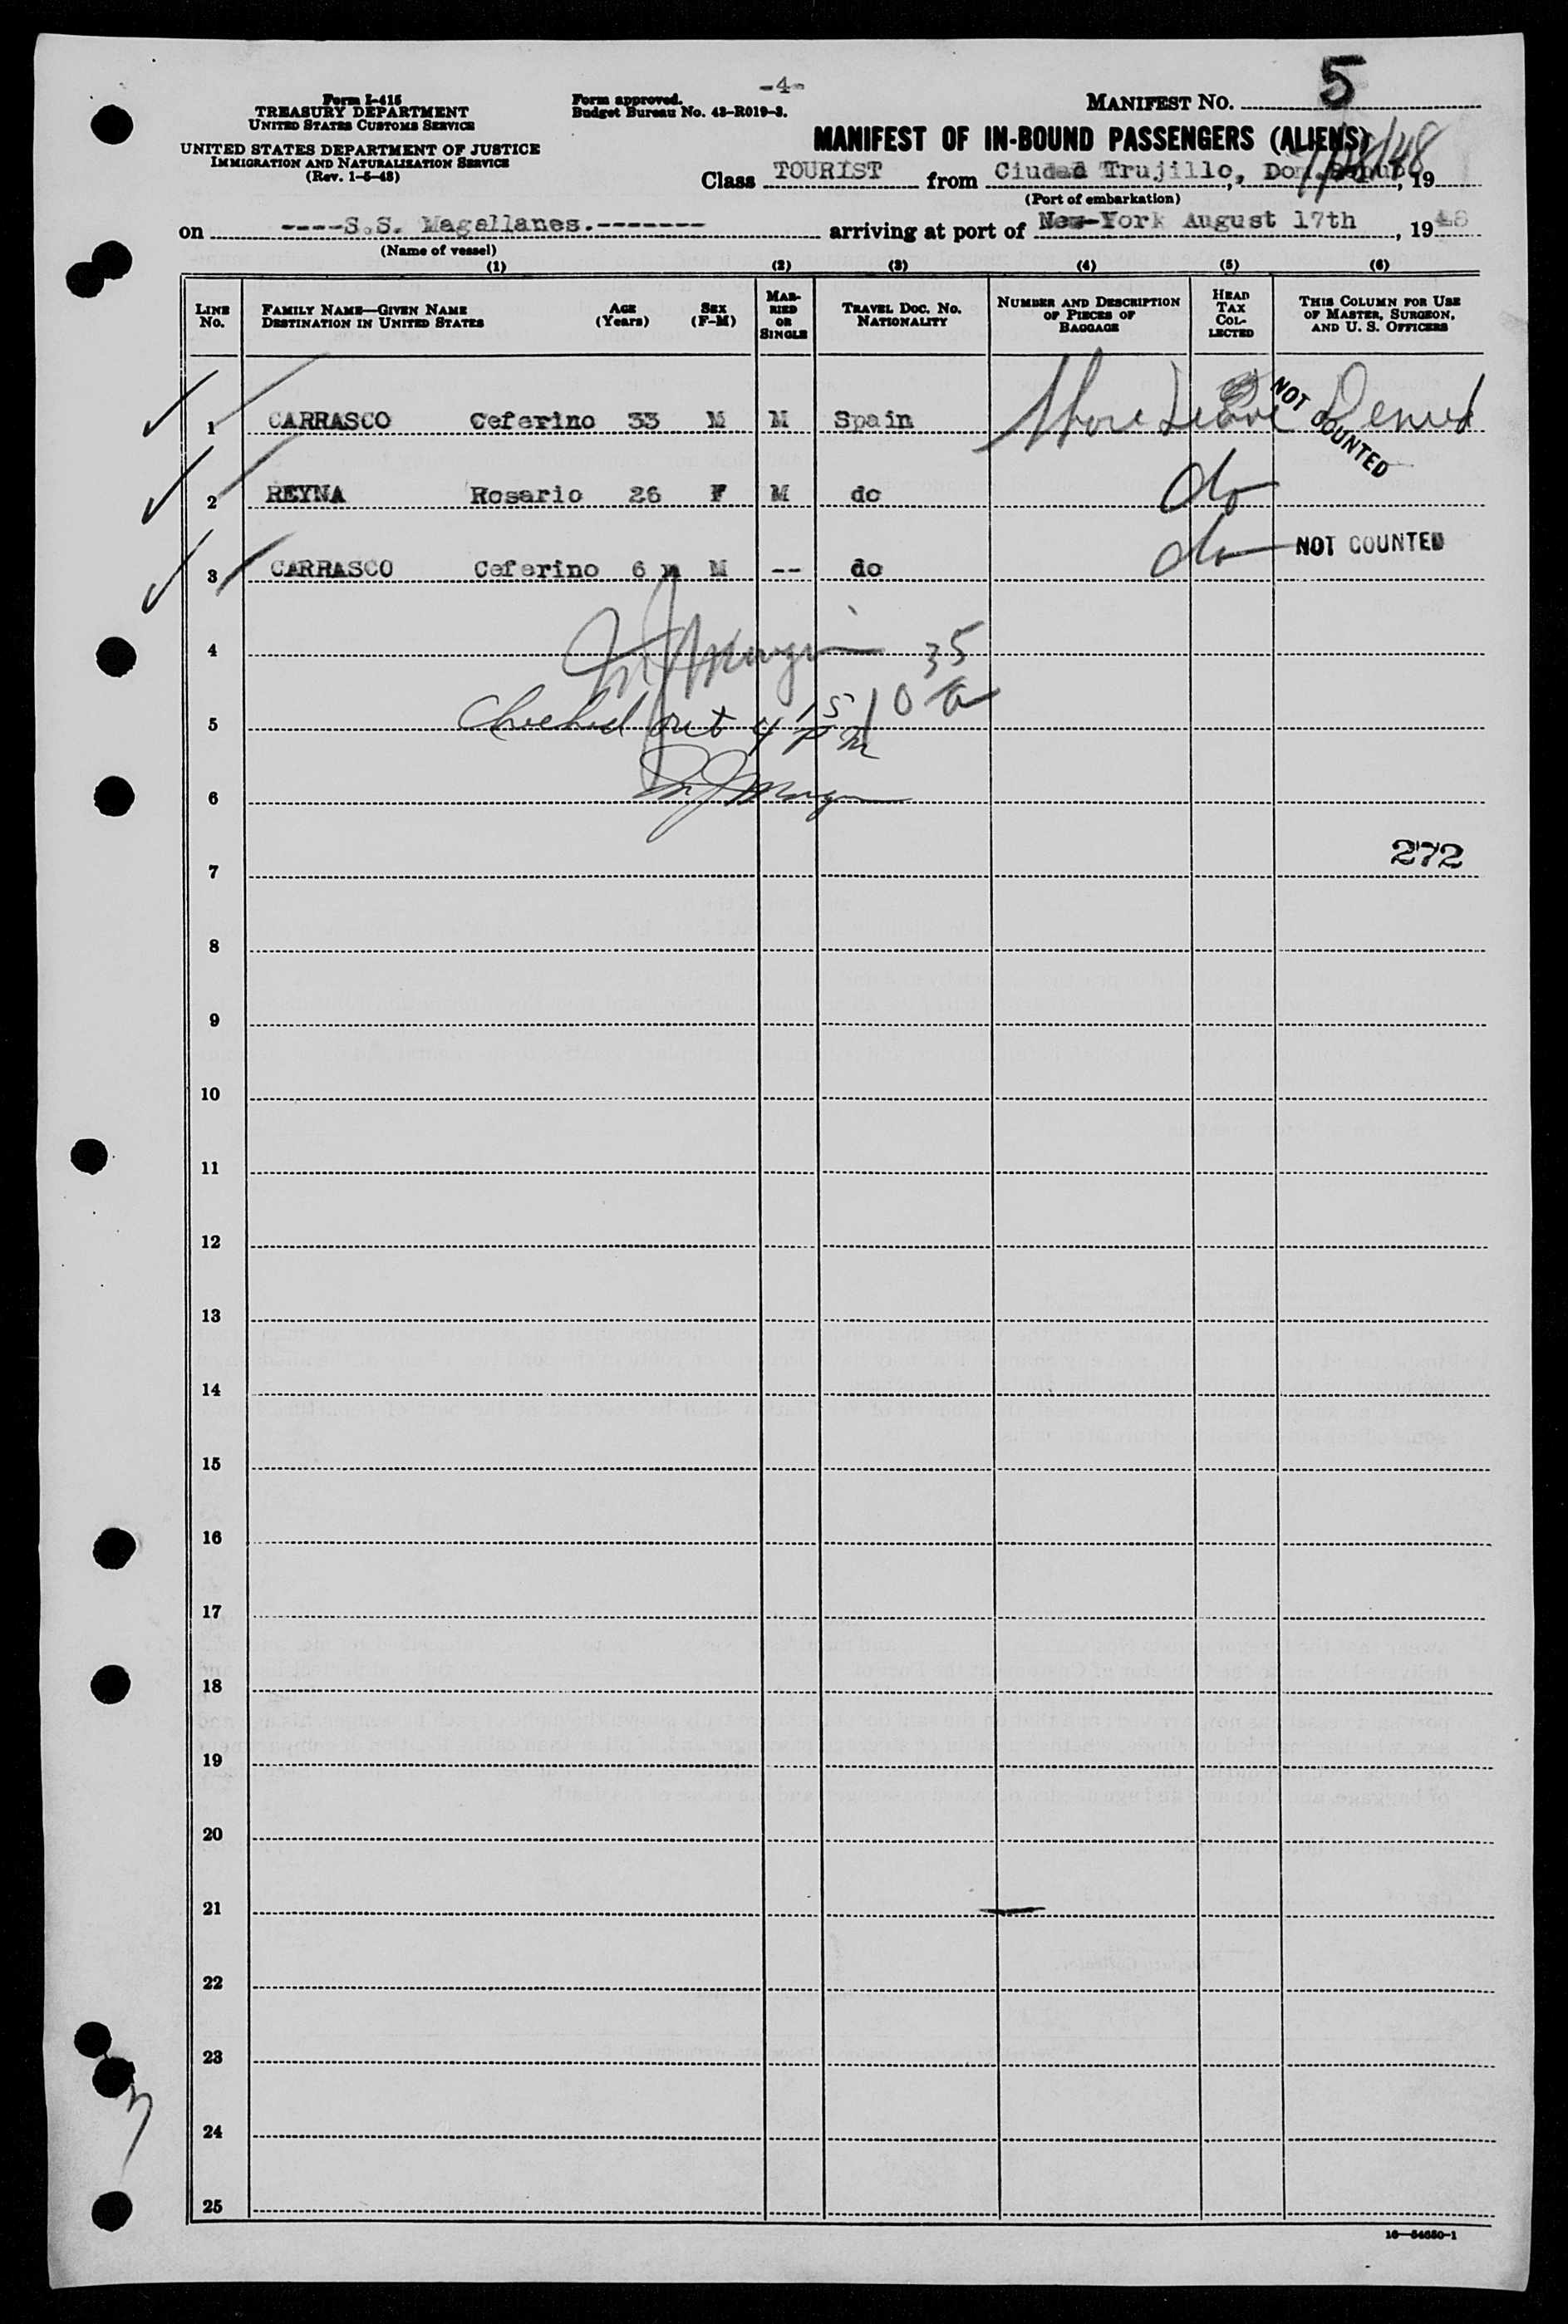 -4-
Form I-415
TREASURY DEPARTMENT
UNITED STATES CUSTOMS SERVICE
UNITED STATES DEPARTMENT OF JUSTICE
IMMIGRATION AND NATURALIZATION SERVICE
(Rev. 1-5-48)
Form approved.
Budget Bureau No. 43-R019-3.
MANIFEST No. 5
MANIFEST OF IN-BOUND PASSENGERS (ALIENS)
Class TOURIST from Ciudad Trujillo, Dom. Repub, 19
(Port of embarkation)
on ----S.S. Magallanes.------- arriving at port of New-York August 17th, 1948
(Name of vessel)
(1) (2) (3) (4) (5) (6)
LINE No. FAMILY NAME—GIVEN NAME DESTINATION IN UNITED STATES AGE (Years) SEX (F-M) MARRIED OR SINGLE TRAVEL DOC. No. NATIONALITY NUMBER AND DESCRIPTION OF PIECES OF BAGGAGE HEAD TAX COLLECTED THIS COLUMN FOR USE OF MASTER, SURGEON, AND U. S. OFFICERS
1 CARRASCO Ceferino 33 M M Spain Shore Leave Denied NOT COUNTED
2 REYNA Rosario 26 F M do do
3 CARRASCO Ceferino 6 m M -- do do NOT COUNTED
4 35
10 a
5 Checked out 4 15 PM
6
272
7
8
9
10
11
12
13
14
15
16
17
18
19
20
21
22
23
24
25
16—54650-1